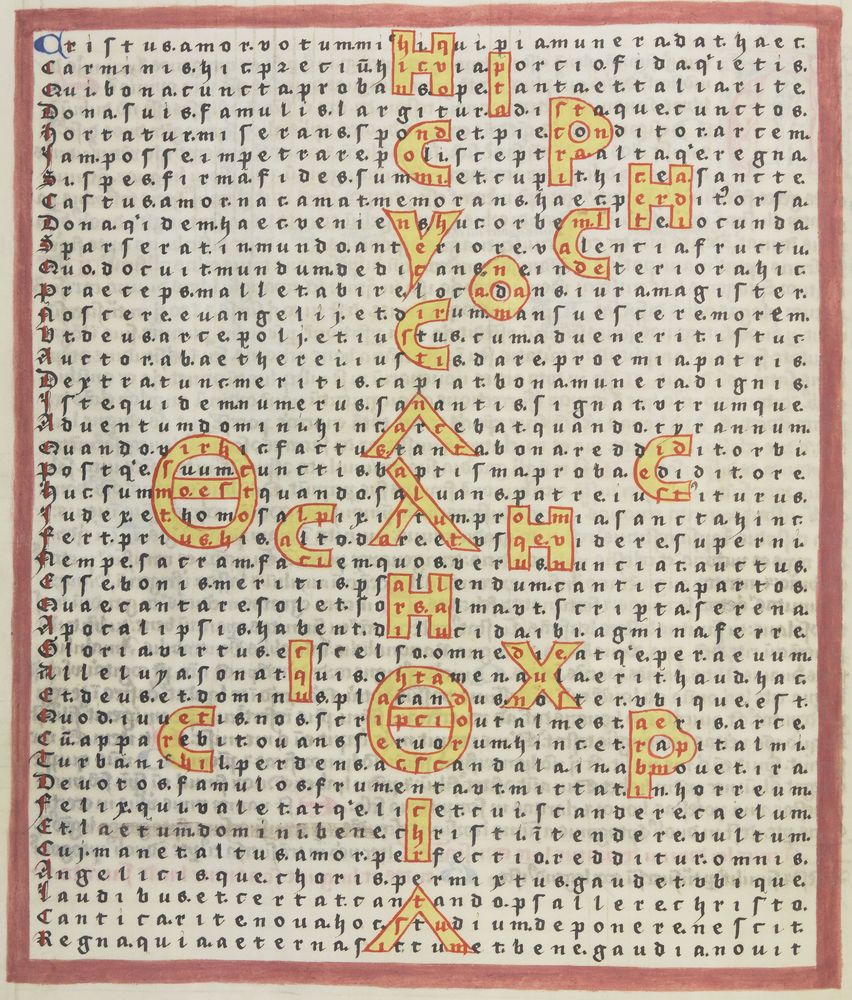 Cristus.amor.votum mihi qui pia munera.dat.haec.
Carminis.hic precium.hic via.portio.fida.quietis.
Qui.bona.cuncta.proba
Dona.suis.famulis.largitur.adista.que.cunctos.
Hortatur.miserans.spondet.pie.conditor.arcem.
Jam.posse.impetrare.poli.sceptra.alta.que.regna.
Si.spes.firma.fides.summi.et.cupit.hic.ea.sancte.
Castus.amor.na
Dona.quidem.haec.veniens
Sparserat.in.mundo.anteriore.valentia.fructu.
Quod.docuit.mundum.dedicans.ne.in.deteriora.hic.
Praeceps.mallet.abire.loca.dans.iura.magister.
Noscere.euangelij.et.dirum.mansuescere.morem.
Vt.deus.arce.polj.et.iustus.cum.aduenerit.istuc.
Auctor.ab.aethere.iustis.dare.proemia.patris.
Dextra.tunc.meritis.capiat.bona.munera.dignis.
Iste.quidem.numerus.sanantis.signat.vtrumque.
Aduentum.domini.hinc.arce.bat.quando.tyrannum.
Quando.vir.hic.factus.tanta.bona.reddidit.orbi.
Postque.suum.cunctis.baptisma.proba.edidit.ore.
Huc.summo.est.quando.saluans.patre.iusti.iturus.
Judex.et.homo.salpixistum.pro
Fert.prius.his.alto.dare.et
Nempe.sacram.faciem.quos.ver
Esse.bonis.meritis.psallendum.cantica.partos.
Quae.cantare.solet.sors.alma.vt.scripta.serena.
Apocalipsis.habent.dilucida.ibi.agmina.ferre.
Gloria.virtus.excelso.omne.die.atque.per.aeuum.
Alleluya.sonat.quis.ohtamen.aula.erit.haud.hac.
Et.deus.et.dominus.placandus.noter.vbique.est.
Quod.iuuet.is.nos.scripcio.ut.almest.aeris.arce.
Cu.apparebit.ouans.seruorum.hinc.et.rapit.almi.
Turba.nichil.perdens.ac.scandala.in.ab
Deuotos.famulos.frumenta.vt.mittat.in.horreum.
Felix.qui.valet.atque.licet.cui.scandere.caelum.
Et.laetum.domini.bene.christi.intendere.vultum.
Cuj.manet.altus.amor.perfectio.redditur.omnis.
Angelicis.que.choris.permixtus.gaudet.vbique.
Laudibus.et.certat.cantando.psallere.christo.
Cantica.rite.noua.hoc.studium.deponere.nescit.
Regna.quia.aeterna.sic.tum.et.bene.gaudia.nouit